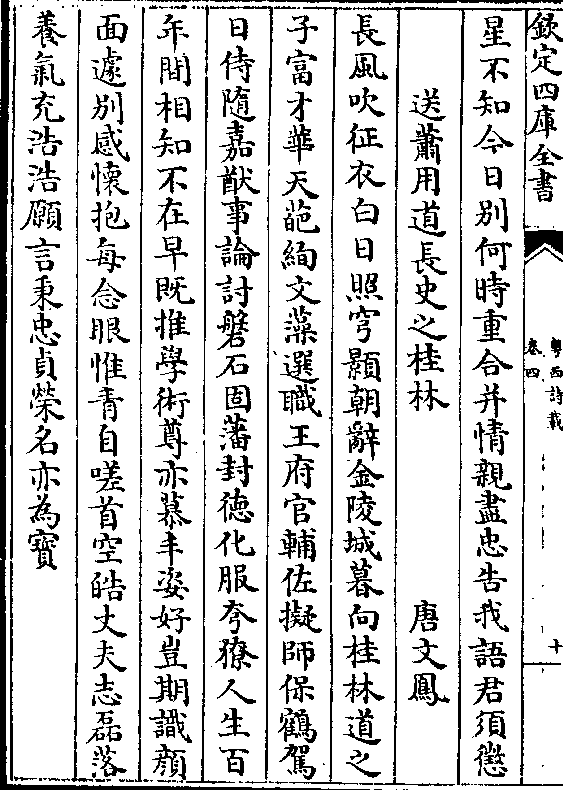 欽定四庫全書
粤西詩載
卷四
十
星不知今日别何時重合并情親盡忠告我語君須懲
送蕭用道長史之桂林
唐文鳳
長風吹征衣白日照穹顥朝辭金陵城暮向桂林道之
子富才華天葩絢文藻選職王府官輔佐擬師保鶴駕
日侍隨嘉猷事論討磐石固藩封德化服夸獠人生百
年間相知不在早既推學術尊亦慕丰姿好豈期識顔
面遽别感懷抱每念眼惟青自嗟首空皓丈夫志磊落
養氣充浩浩願言秉忠貞榮名亦為寳